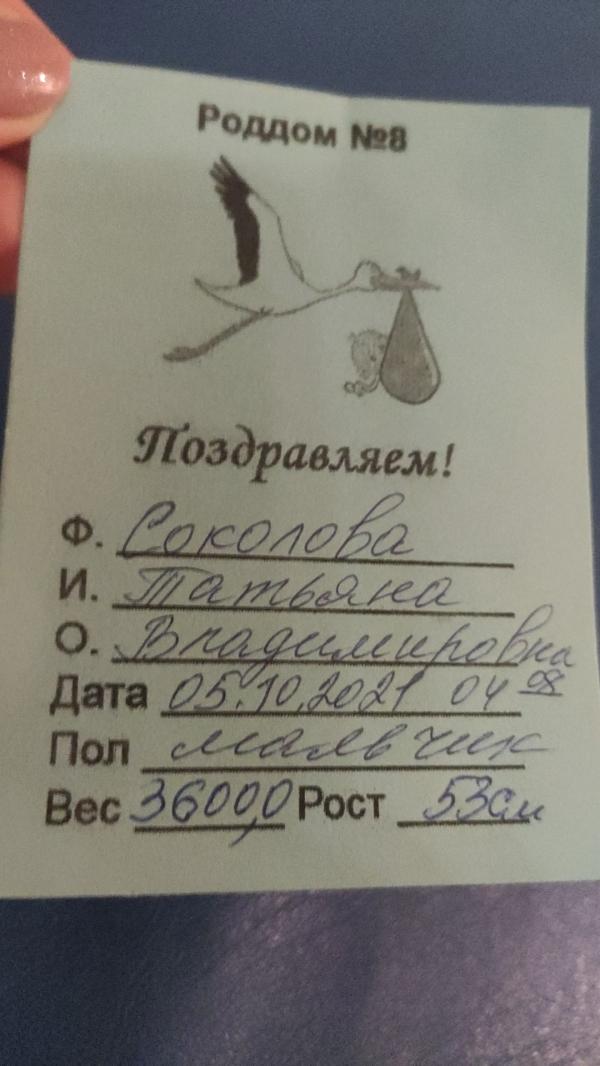 Роддом №8
Поздравляем!
Ф. Соколова
И. Татьяна
О. Владимировна
Дата 05.10.2021 04 08
Пол мальчик
Вес 3600,0 Рост 53см